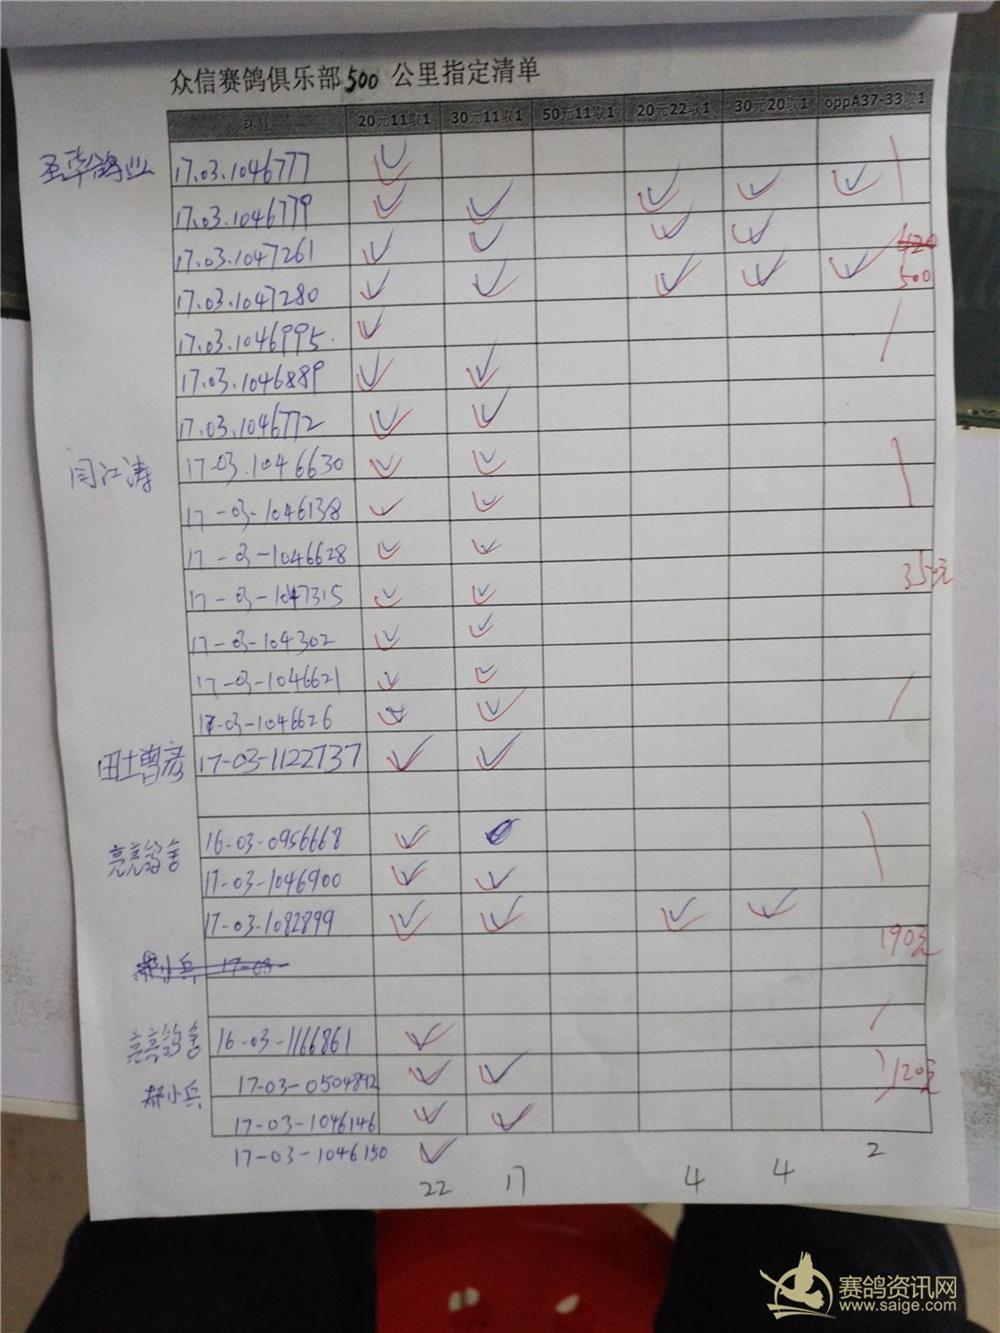 众信赛鸽俱乐部500公里指定清单
环号 20元11取1 30元11取1 50元11取1 20元22取1 30元20取1 oppA37-33取1
17.03.1046777
17.03.1046779
17.03.1047261 420
17.03.1047280 500
17.03.1046995.
17.03.1046889
17.03.1046772
闫江涛 17-03.1046630
17-03-1046138
17-03-1046628
17-03-1047315 350元
17-03-104302
17-03-1046621
17-03-1046626
田士曾彦 17-03-1122737
亮亮鸽舍 16-03-0956668
17-03-1046900
17-03-1082899
190元
郝小兵 17-03-
亮亮鸽舍 16-03-1166861
郝小兵 17-03-0504892 120元
17-03-1046146
17-03-1046150
22 17 4 4 2
赛鸽资讯网
www.saige.com